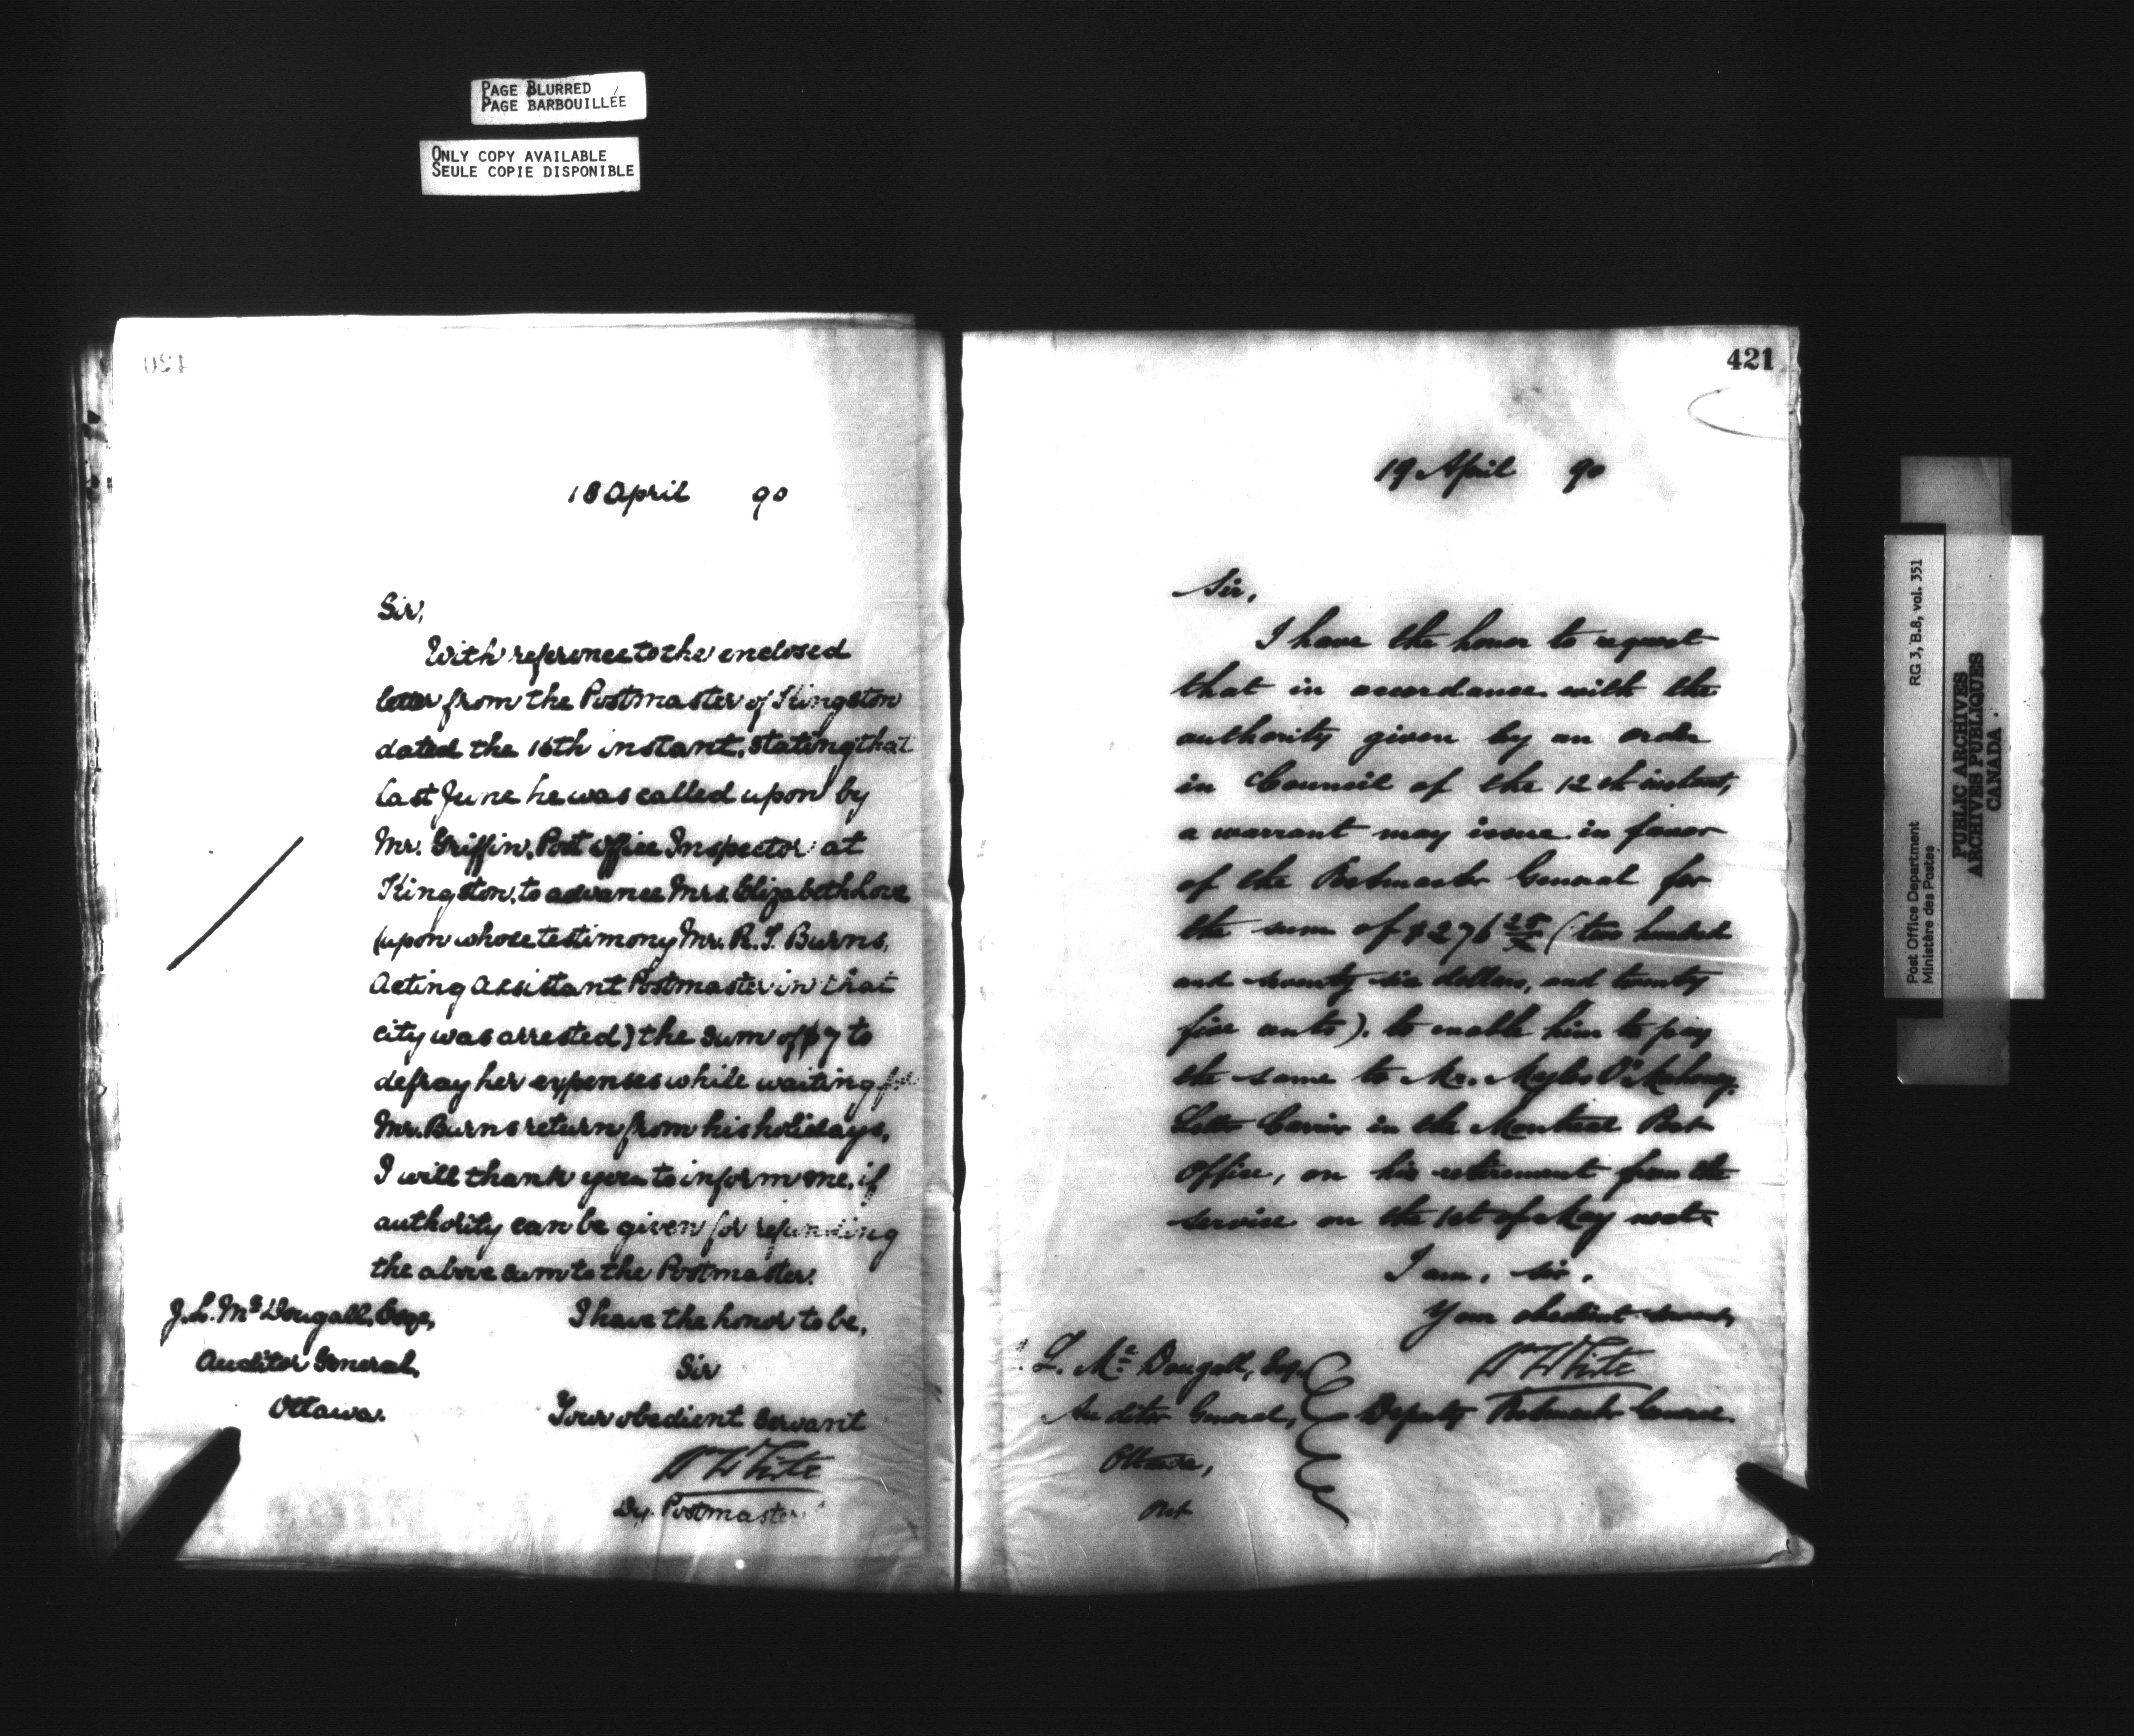 PAGE BLURRED
PAGE BARBOUILLÉE
ONLY COPY AVAILABLE
SEULE COPIE DISPONIBLE
420
18 April 90
Sir,
With refrence to the enclosed
letter from the Postmaster of Kingston
dated the 16th instant, stating that
last June he was called upon by
Mr. Griffin, Post Office Inspector at
Kingston, to advance Mrs. Elizabeth Love
(upon whose testimony Mr. R. S. Burns,
Acting Assistant Postmaster in that
city was arrested) the sum of $7 to
defray her expenses while waiting for
Mr. Burns return from his holidays,
I will thank you to inform me, if
authority can be given for refunding
the above sum to the Postmaster.
I have the honor to be,
Sir
Your obedient Servant
W White
Dy. Postmaster
J. L. McDougall, Esqe,
Auditor General,
Ottawa.
421
19 April 90
Sir,
I have the honor to request
that in accordance with the
authority given by an order
in Council of the 12th instant,
a warrant may issue in favor
of the Postmaster General for
the sum of $276 25/x (two hundred
and seventy six dollars, and twenty
five cents), to enable him to pay
the same to Mr. Myles O'Mahoney,
Letter Carrier in the Montreal Post
Office, on his retirement from the
service on the 1st of May next.
I am, sir,
Your obedient servant,
W White
Deputy Postmaster General.
L. Mc Dougall, Esq.
Auditor General,
Ottawa,
Post Office Department
Ministère des Postes
RG 3, B.8, vol. 351
PUBLIC ARCHIVES
ARCHIVES PUBLIQUES
CANADA